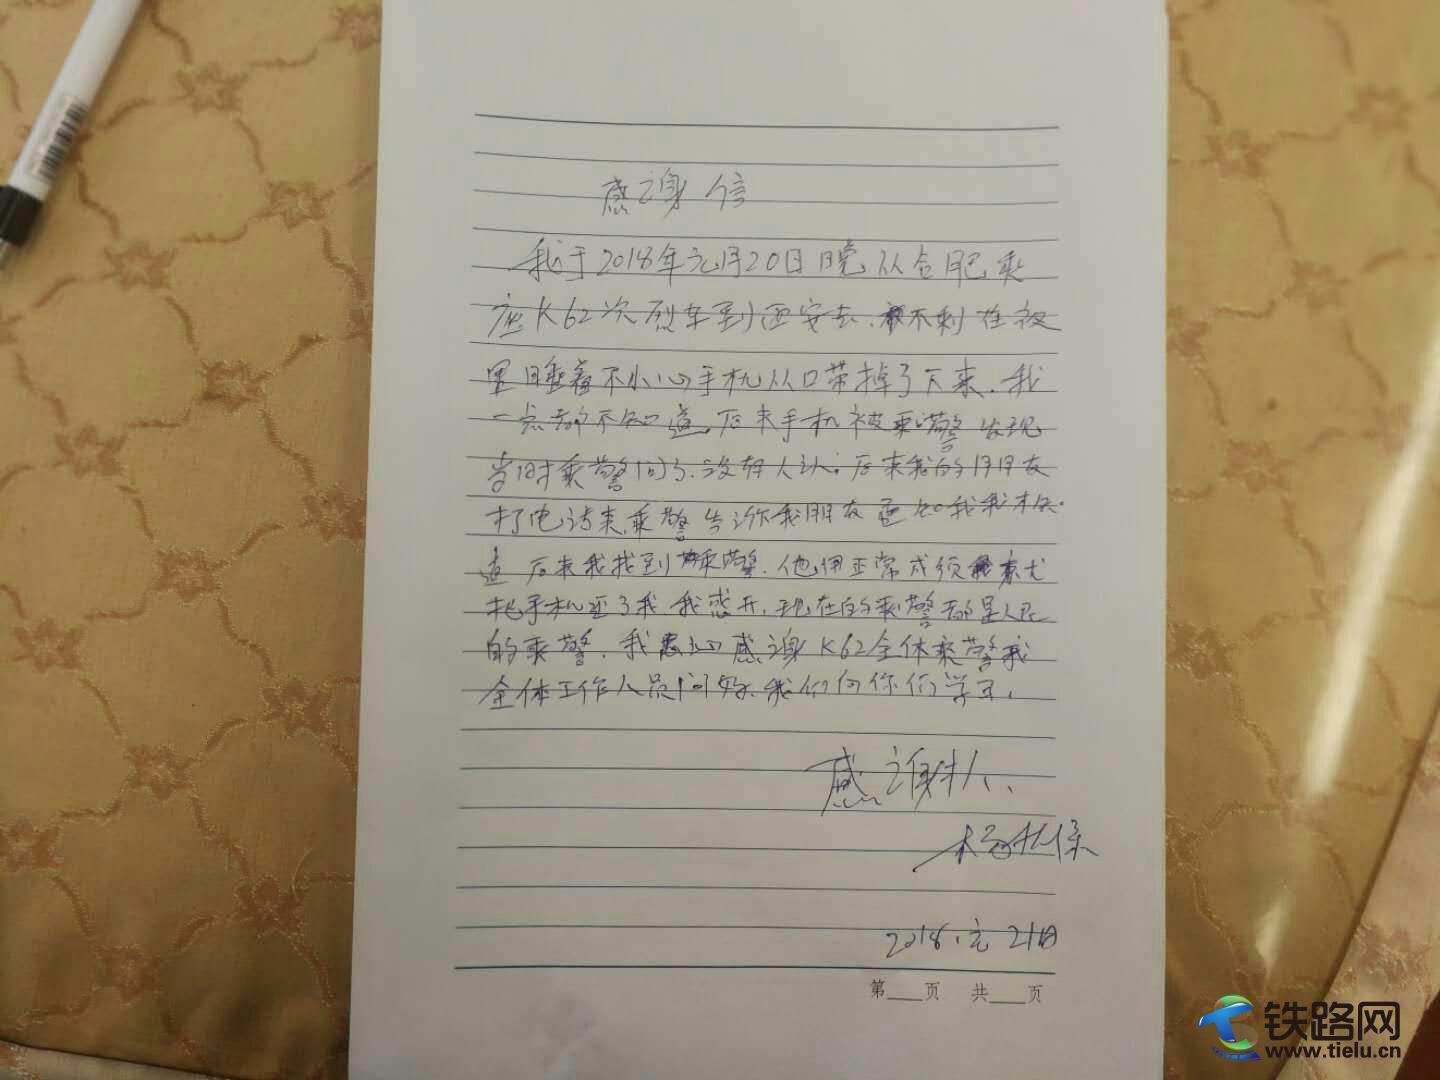 感谢信
我于2018年元月20日晚从合肥乘
座K62次列车到西安去.不剩在夜
里睡着不小心手机从口带掉了下来.我
一点都不知道.后来手机被乘警发现
当时乘警问了.没有人认.后来我的朋友
打电话来.乘警告诉我朋友通知我我才知
道 后来我找到乘警.他用正常成须
把手机还了我 我感开.现在的乘警都是人民
的乘警.我忠心感谢K62全体乘警我
全体工作人员问好.我们向你们学习.
感谢人.
杨
2018.元 21日
第___页 共___页
铁路网
www.tielu.cn